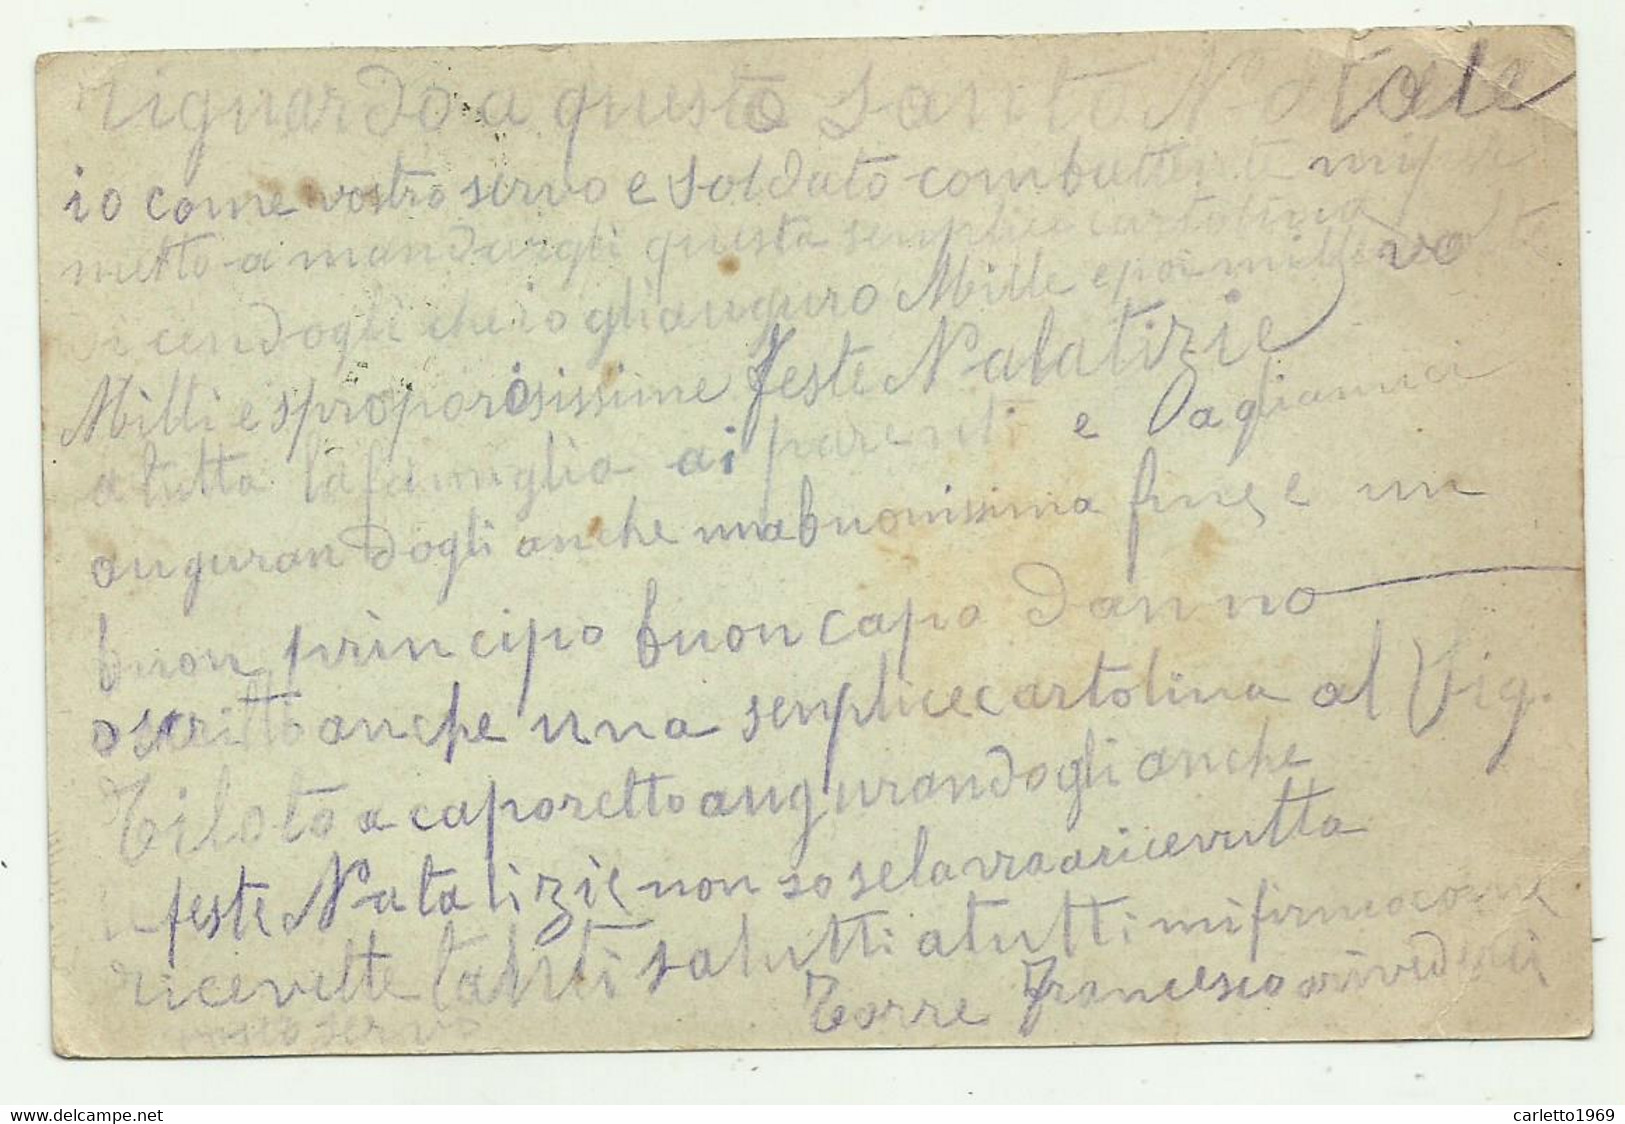 riguardo a questo Santo Natale
io come vostro servo e soldato combattente mi per
metto a mandargli questa senplice cartolina
dicendogli che io gli auguro Mille e poi mille volte
Milli e sproporosissime feste Natalatizie
a tutta la famiglia ai parenti e Dagliamici
augurandogli anche una buonissima fine, e un
buon principo buon capo danno
o scritto anche una senplice cartolina al Sig.
Tiloto a caporetto augurandogli anche
le feste Natalizie non so se lavraaricevutta
ricevette tanti salutti a tutti mi firmo come
vostro servo Torre Francesco arivederci
www.delcampe.net
carletto1969